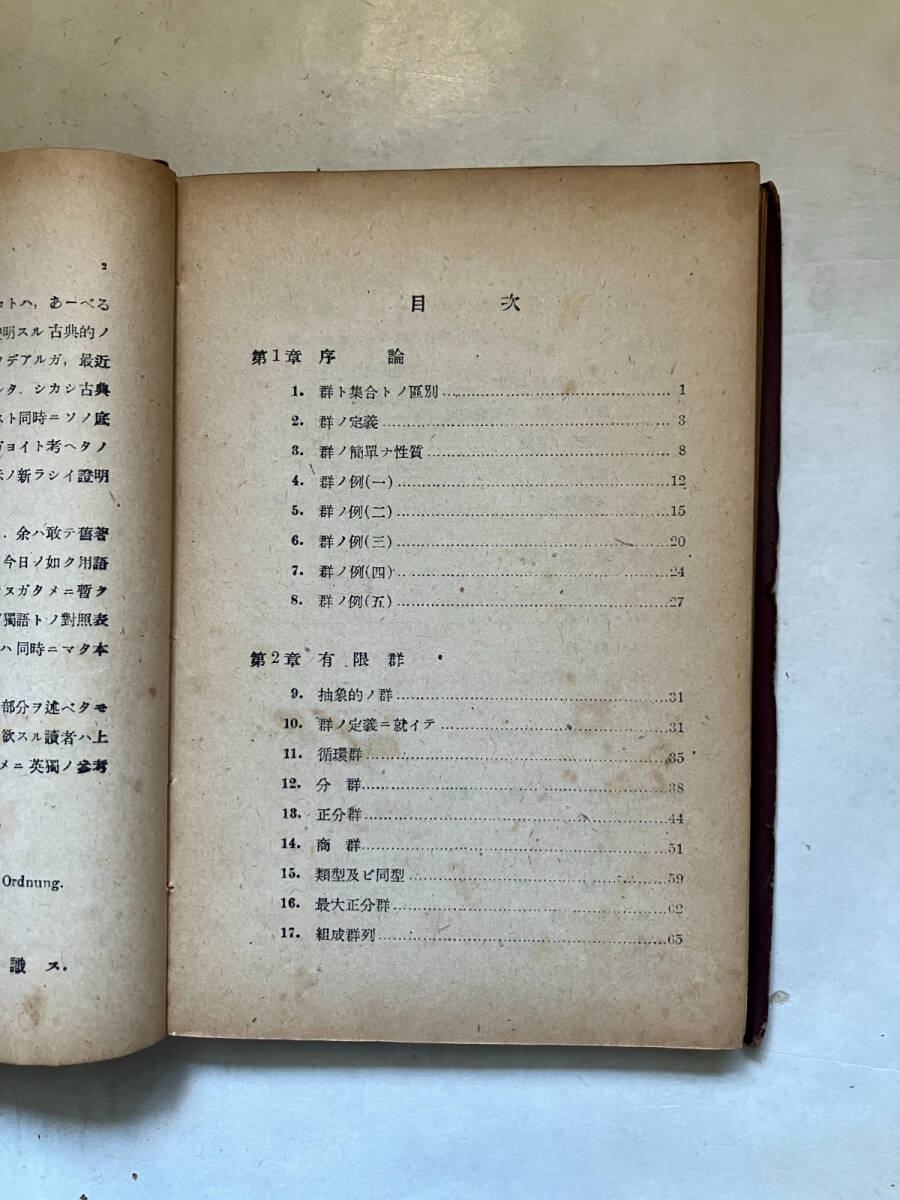 2
コトハ, あーべる
明スル古典的ノ
デアルガ, 最近
タ. シカシ古典
スト同時ニソノ底
ガヨイト考ヘタノ
ノ新ラシイ證明
. 余ハ敢テ舊著
今日ノ如ク用語
スガタメニ暫ク
獨語トノ對照表
ハ同時ニマタ本
部分ヲ述ベタモ
欲スル讀者ハ上
メニ英獨ノ參考
Ordnung.
識ス.
目 次
第1章 序 論
1. 群ト集合トノ區別 1
2. 群ノ定義 3
3. 群ノ簡單ナ性質 8
4. 群ノ例(一) 12
5. 群ノ例(二) 15
6. 群ノ例(三) 20
7. 群ノ例(四) 24
8. 群ノ例(五) 27
第2章 有限群
9. 抽象的ノ群 31
10. 群ノ定義ニ就イテ 31
11. 循環群 35
12. 分 群 38
13. 正分群 44
14. 商 群 51
15. 類型及ビ同型 59
16. 最大正分群 62
17. 組成群列 65